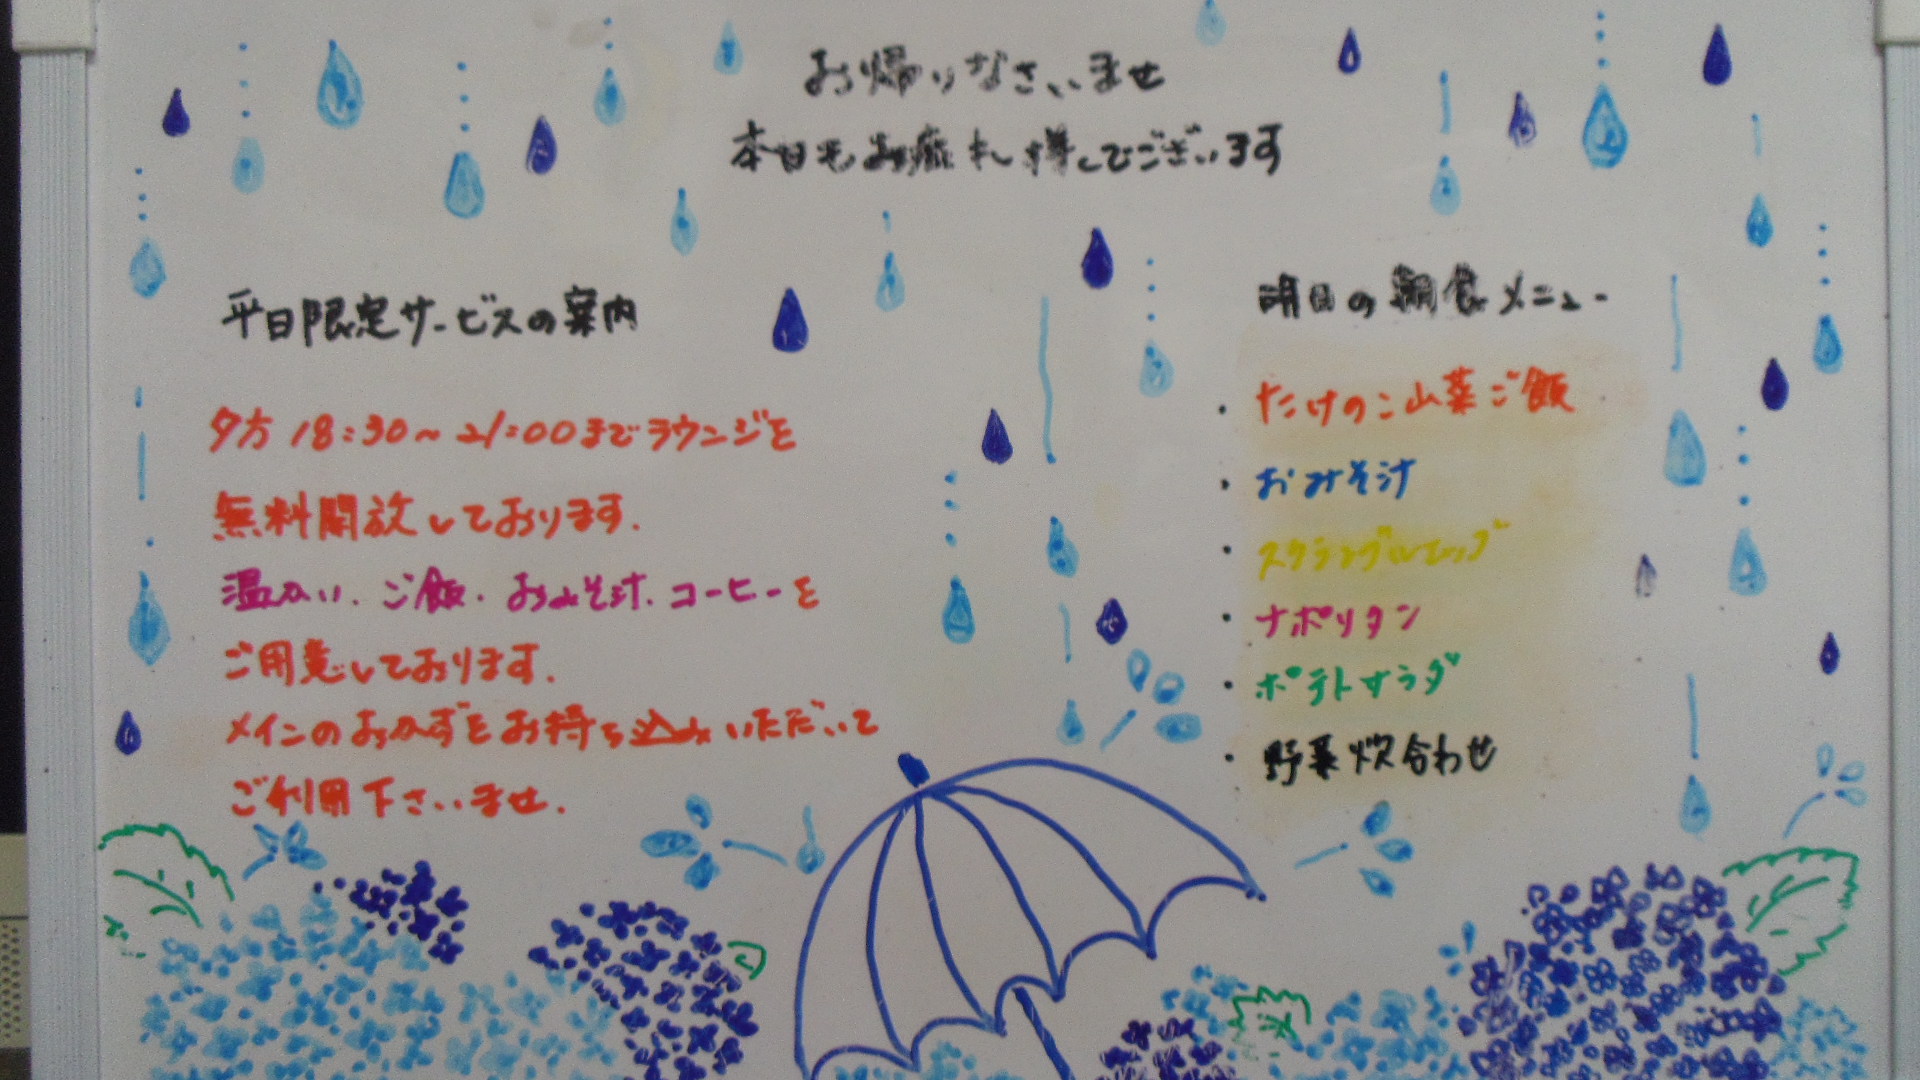 お帰りなさいませ
本日もお疲れ様でございます
平日限定サービスの案内
夕方 18:30~21:00までラウンジを
無料開放しております.
温かい.ご飯.おみそ汁.コーヒーを
ご用意しております.
メインのおかずをお持ち込みいただいて
ご利用下さいませ.
明日の朝食メニュー
・たけのこ山菜ご飯
・おみそ汁
・スクランブルエッグ
・ナポリタン
・ポテトサラダ
・野菜炊合わせ